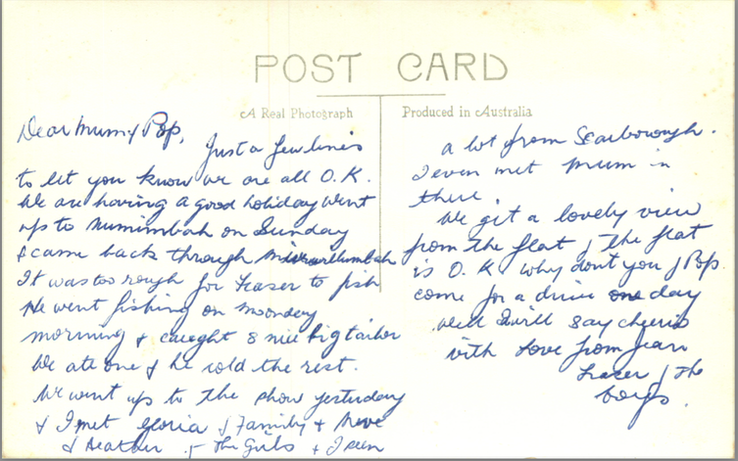 POST CARD
A Real Photograph
Produced in Australia
Dear Mum & Pop,
Just a few lines
to let you know we are all O.K.
We are having a good holiday went
up to Numimbah on Sunday
& came back through
It was too rough for Fraser to fish
He went fishing on Monday
morning & caught 8 nice big tailor
We ate one & he sold the rest.
We went up to the show yesterday
& I met Gloria & Family & Neve
& Heather & the Girls & I seen
a lot from Scarborough.
I even met Mum in
there.
We get a lovely view
from the flat & the flat
is O.K. why dont you & Pop
come for a drive one day
well I will say cheerio
with love from Jean
Fraser & the
boys.